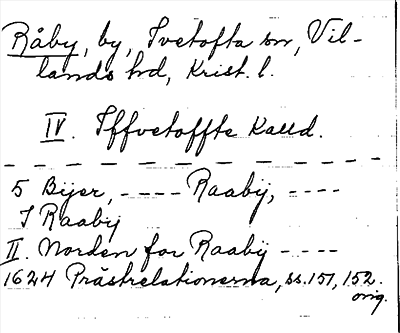 Råby, by, Ivetofta sn, Vil-
lands hd, Krist. l.
IV. Iffvetoffte Kalld.
5 Bÿer, ---- Raabÿ, ----
I Raabÿ
II. Norden for Raabÿ ----
1624 Prästrelationerna, ss. 151, 152.
orig.